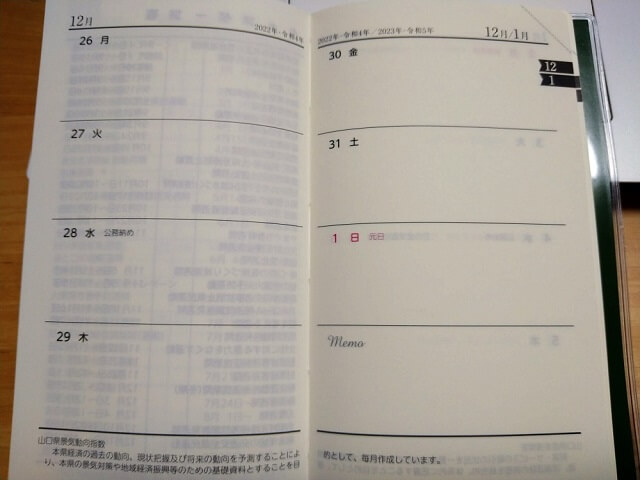 12月
2022年・令和4年
26 月
27 火
28 水 公務納め
29 木
山口県景気動向指数
本県経済の過去の動向、現状把握及び将来の動向を予測することによ
り、本県の景気対策や地域経済振興等のための基礎資料とすることを目
2022年・令和4年／2023年・令和5年
12月/1月
12
1
30 金
31 土
1 日 元日
Memo
的として、毎月作成しています。